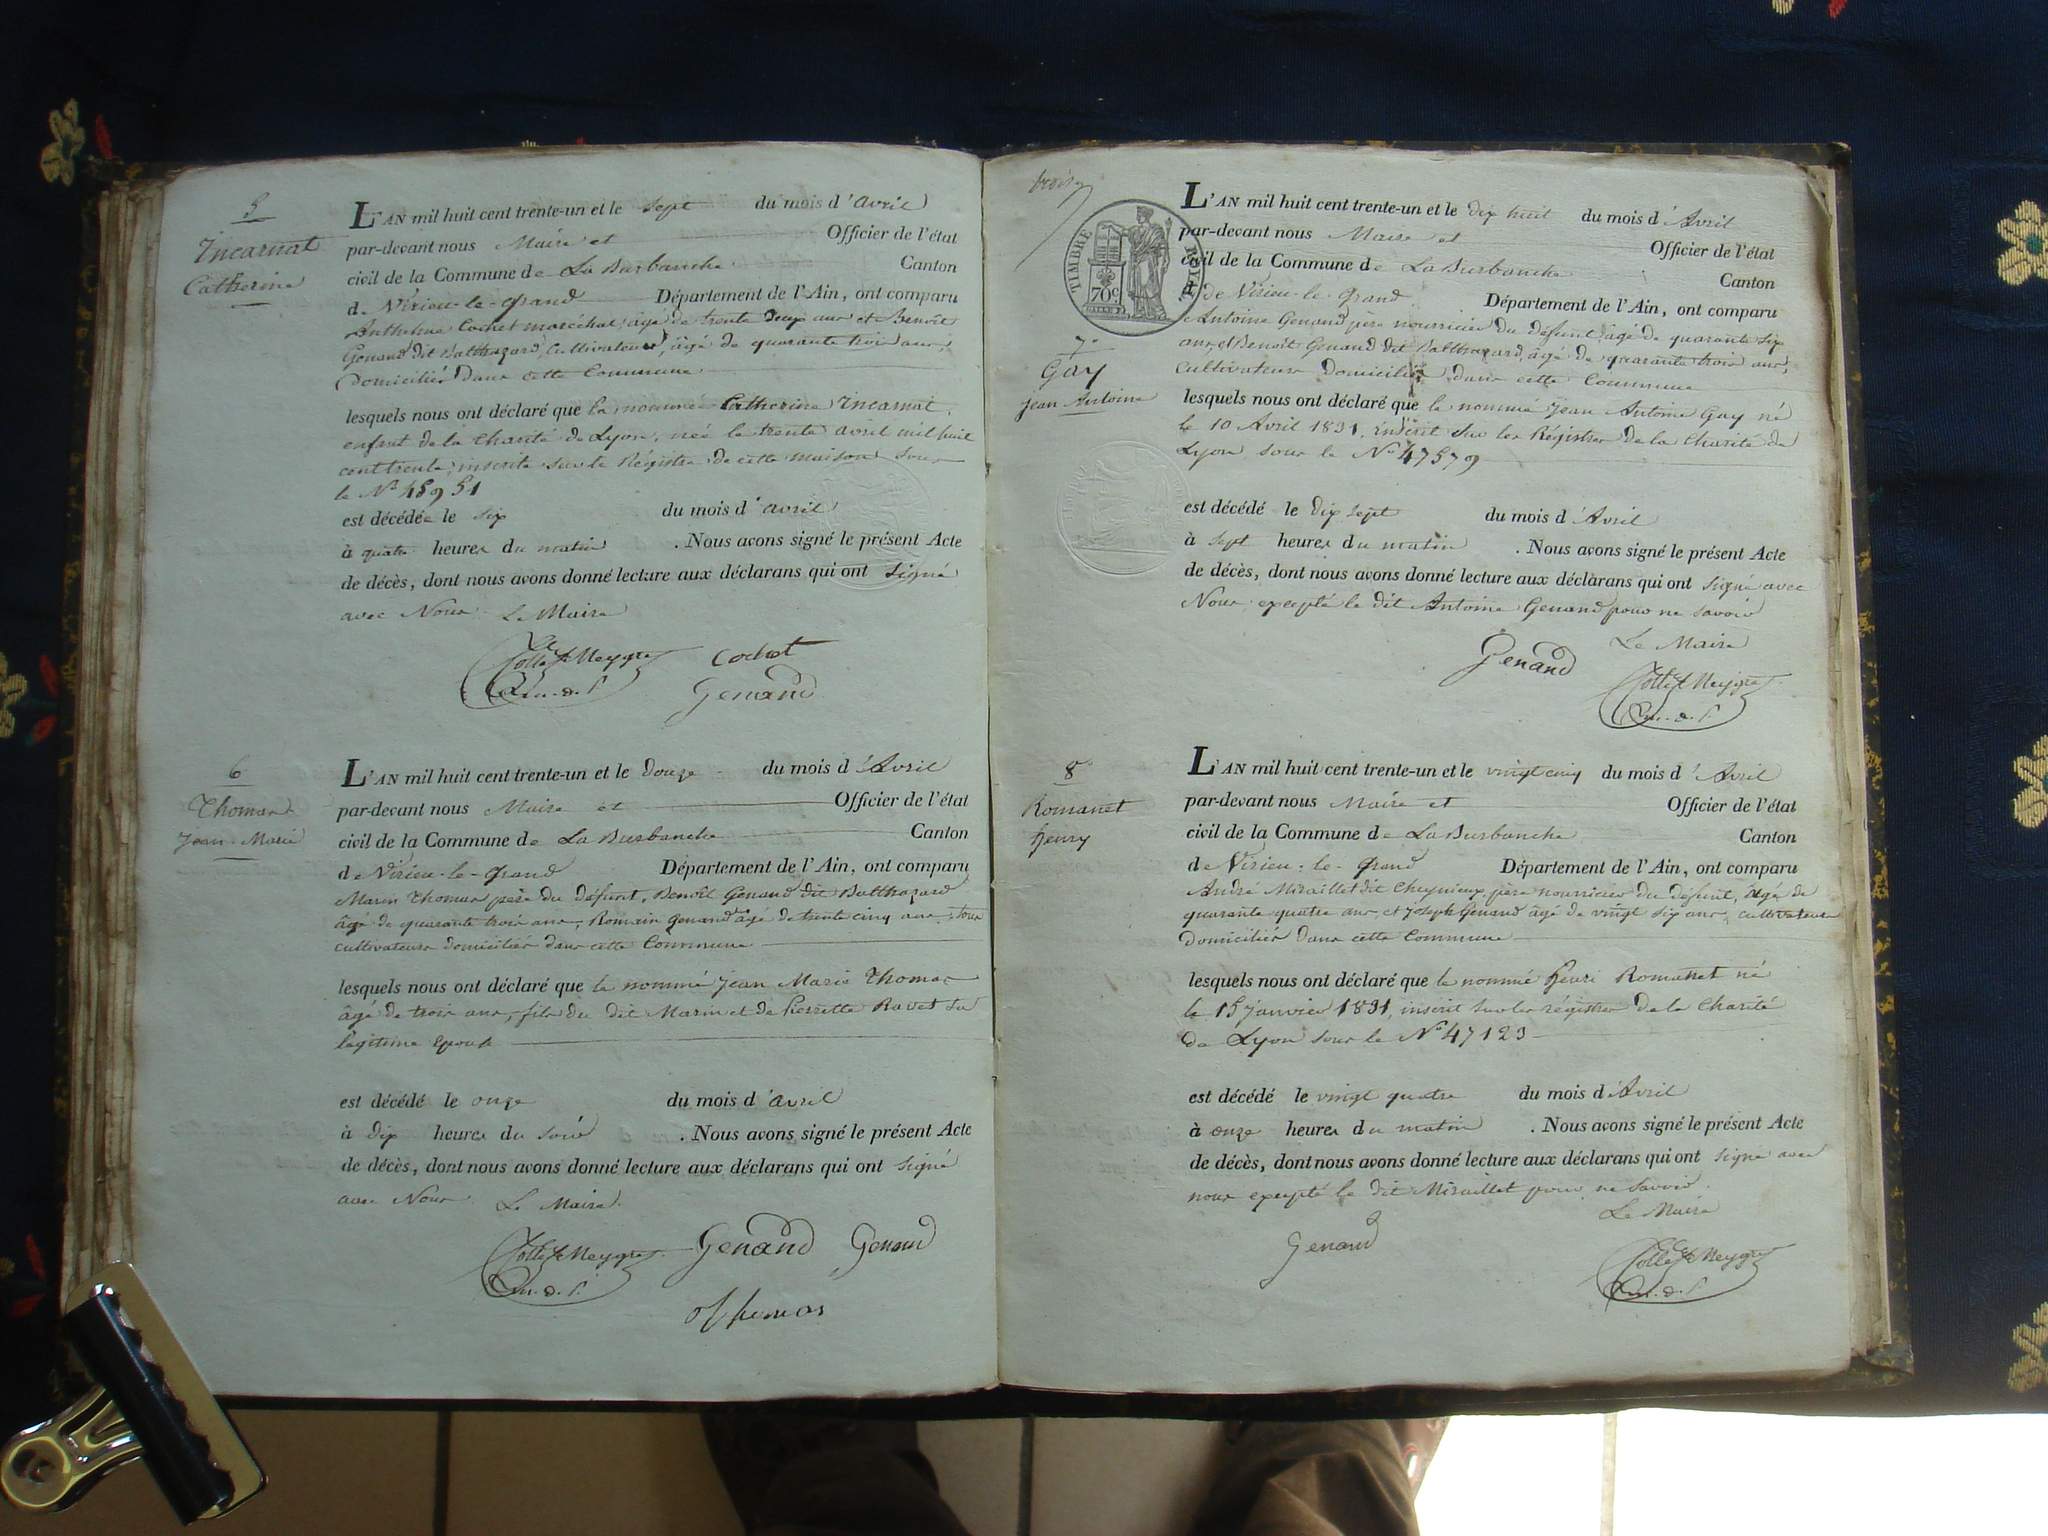 5
Incarnat
Catherine
L'AN mil huit cent trente-un et le sept du mois d'avril
par-devant nous Maire et Officier de l'état
civil de la Commune de La Burbanche Canton
de Virieu-le-Grand Département de l'Ain, ont comparu
Anthelme Cochet maréchal, âgé de trente deux ans et Benoît
Genand dit Balthazard, cultivateurs, âgé de quarante trois ans,
domiciliés dans cette Commune
lesquels nous ont déclaré que la nommée Catherine Incarnat,
enfant de la Charité de Lyon, née le trente avril mil huit
cent trente, inscrite sur le Régistre de cette maison sous
le No 45951
est décédée le six du mois d'avril
à quatre heures du matin . Nous avons signé le présent Acte
de décès, dont nous avons donné lecture aux déclarans qui ont signé
avec Nous. Le Maire
Collet Meygret
Cochet
Genand
6
Thomas
Jean-Marie
L'AN mil huit cent trente-un et le douze du mois d'Avril
par-devant nous Maire et Officier de l'état
civil de la Commune de La Burbanche Canton
de Virieu-le-Grand Département de l'Ain, ont comparu
Marin Thomas père du défunt, Benoît Genand dit Balthazard
âgé de quarante trois ans, Romain Genand âgé de trente cinq ans, tous
cultivateurs domiciliés dans cette Commune
lesquels nous ont déclaré que le nommé Jean Marie Thomas
âgé de trois ans, fils du dit Marin et de Pierrette Ravet sa
légitime épouse
est décédé le onze du mois d'avril
à dix heures du soir . Nous avons signé le présent Acte
de décès, dont nous avons donné lecture aux déclarans qui ont signé
avec Nous. Le Maire.
Collet Meygret
Genand Genand
Thomas
trois
TIMBRE ROYAL
70c
7
Gay
Jean Antoine
L'AN mil huit cent trente-un et le dix huit du mois d'Avril
par-devant nous Maire et Officier de l'état
civil de la Commune de La Burbanche Canton
de Virieu-le-Grand Département de l'Ain, ont comparu
Antoine Genand père nourricier du défunt âgé de quarante six
ans, et Benoît Genand dit Balthazard, âgé de quarante trois ans,
cultivateurs domiciliés dans cette Commune
lesquels nous ont déclaré que le nommé Jean Antoine Gay né
le 10 Avril 1831, inscrit sur les Régistres de la Charité de
Lyon sous le No 47579
est décédé le dix sept du mois d'Avril
à sept heures du matin . Nous avons signé le présent Acte
de décès, dont nous avons donné lecture aux déclarans qui ont signé avec
Nous, excepté le dit Antoine Genand pour ne savoir
Le Maire
Genand
Collet Meygret
8
Romanet
henry
L'AN mil huit cent trente-un et le vingt cinq du mois d'Avril
par-devant nous Maire et Officier de l'état
civil de la Commune de La Burbanche Canton
de Virieu-le-Grand Département de l'Ain, ont comparu
André Miraillet dit Cheynieux, père nourricier du défunt, âgé de
quarante quatre ans, et Joseph Genand âgé de vingt six ans, cultivateurs
domiciliés dans cette Commune
lesquels nous ont déclaré que le nommé henri Romanet né
le 15 janvier 1831, inscrit sur les régistres de la Charité
de Lyon sous le No 47123
est décédé le vingt quatre du mois d'Avril
à onze heures du matin . Nous avons signé le présent Acte
de décès, dont nous avons donné lecture aux déclarans qui ont signé avec
nous excepté le dit Miraillet pour ne savoir.
Le Maire
Genand
Collet Meygret